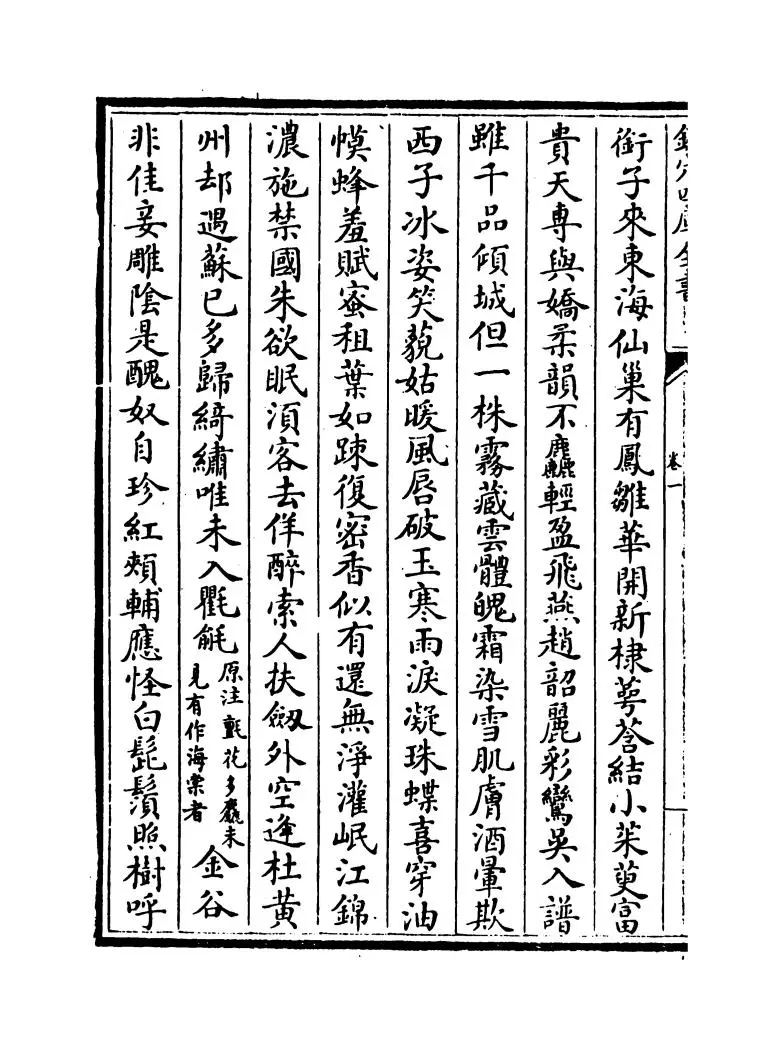 欽定四庫全書
卷一
銜子來東海仙巢有鳳雛華開新棣萼荅結小茱萸富
貴天專與嬌柔韻不麤輕盈飛燕趙韶麗彩鸞吳入譜
雖千品傾城但一株霧藏雲體魄霜染雪肌膚酒暈欺
西子冰姿笑藐姑暖風唇破玉寒雨淚凝珠蝶喜穿油
幙蜂羞賦蜜租葉如踈復密香似有還無淨灌岷江錦
濃施禁國朱欲眠湏客去佯醉索人扶劒外空逢杜黄
州却遇蘇已多歸綺繡唯未入氍毹原注氈花多麤未見有作海棠者金谷
非佳妾雕陰是醜奴自珍紅頰輔應怪白髭鬚照樹呼